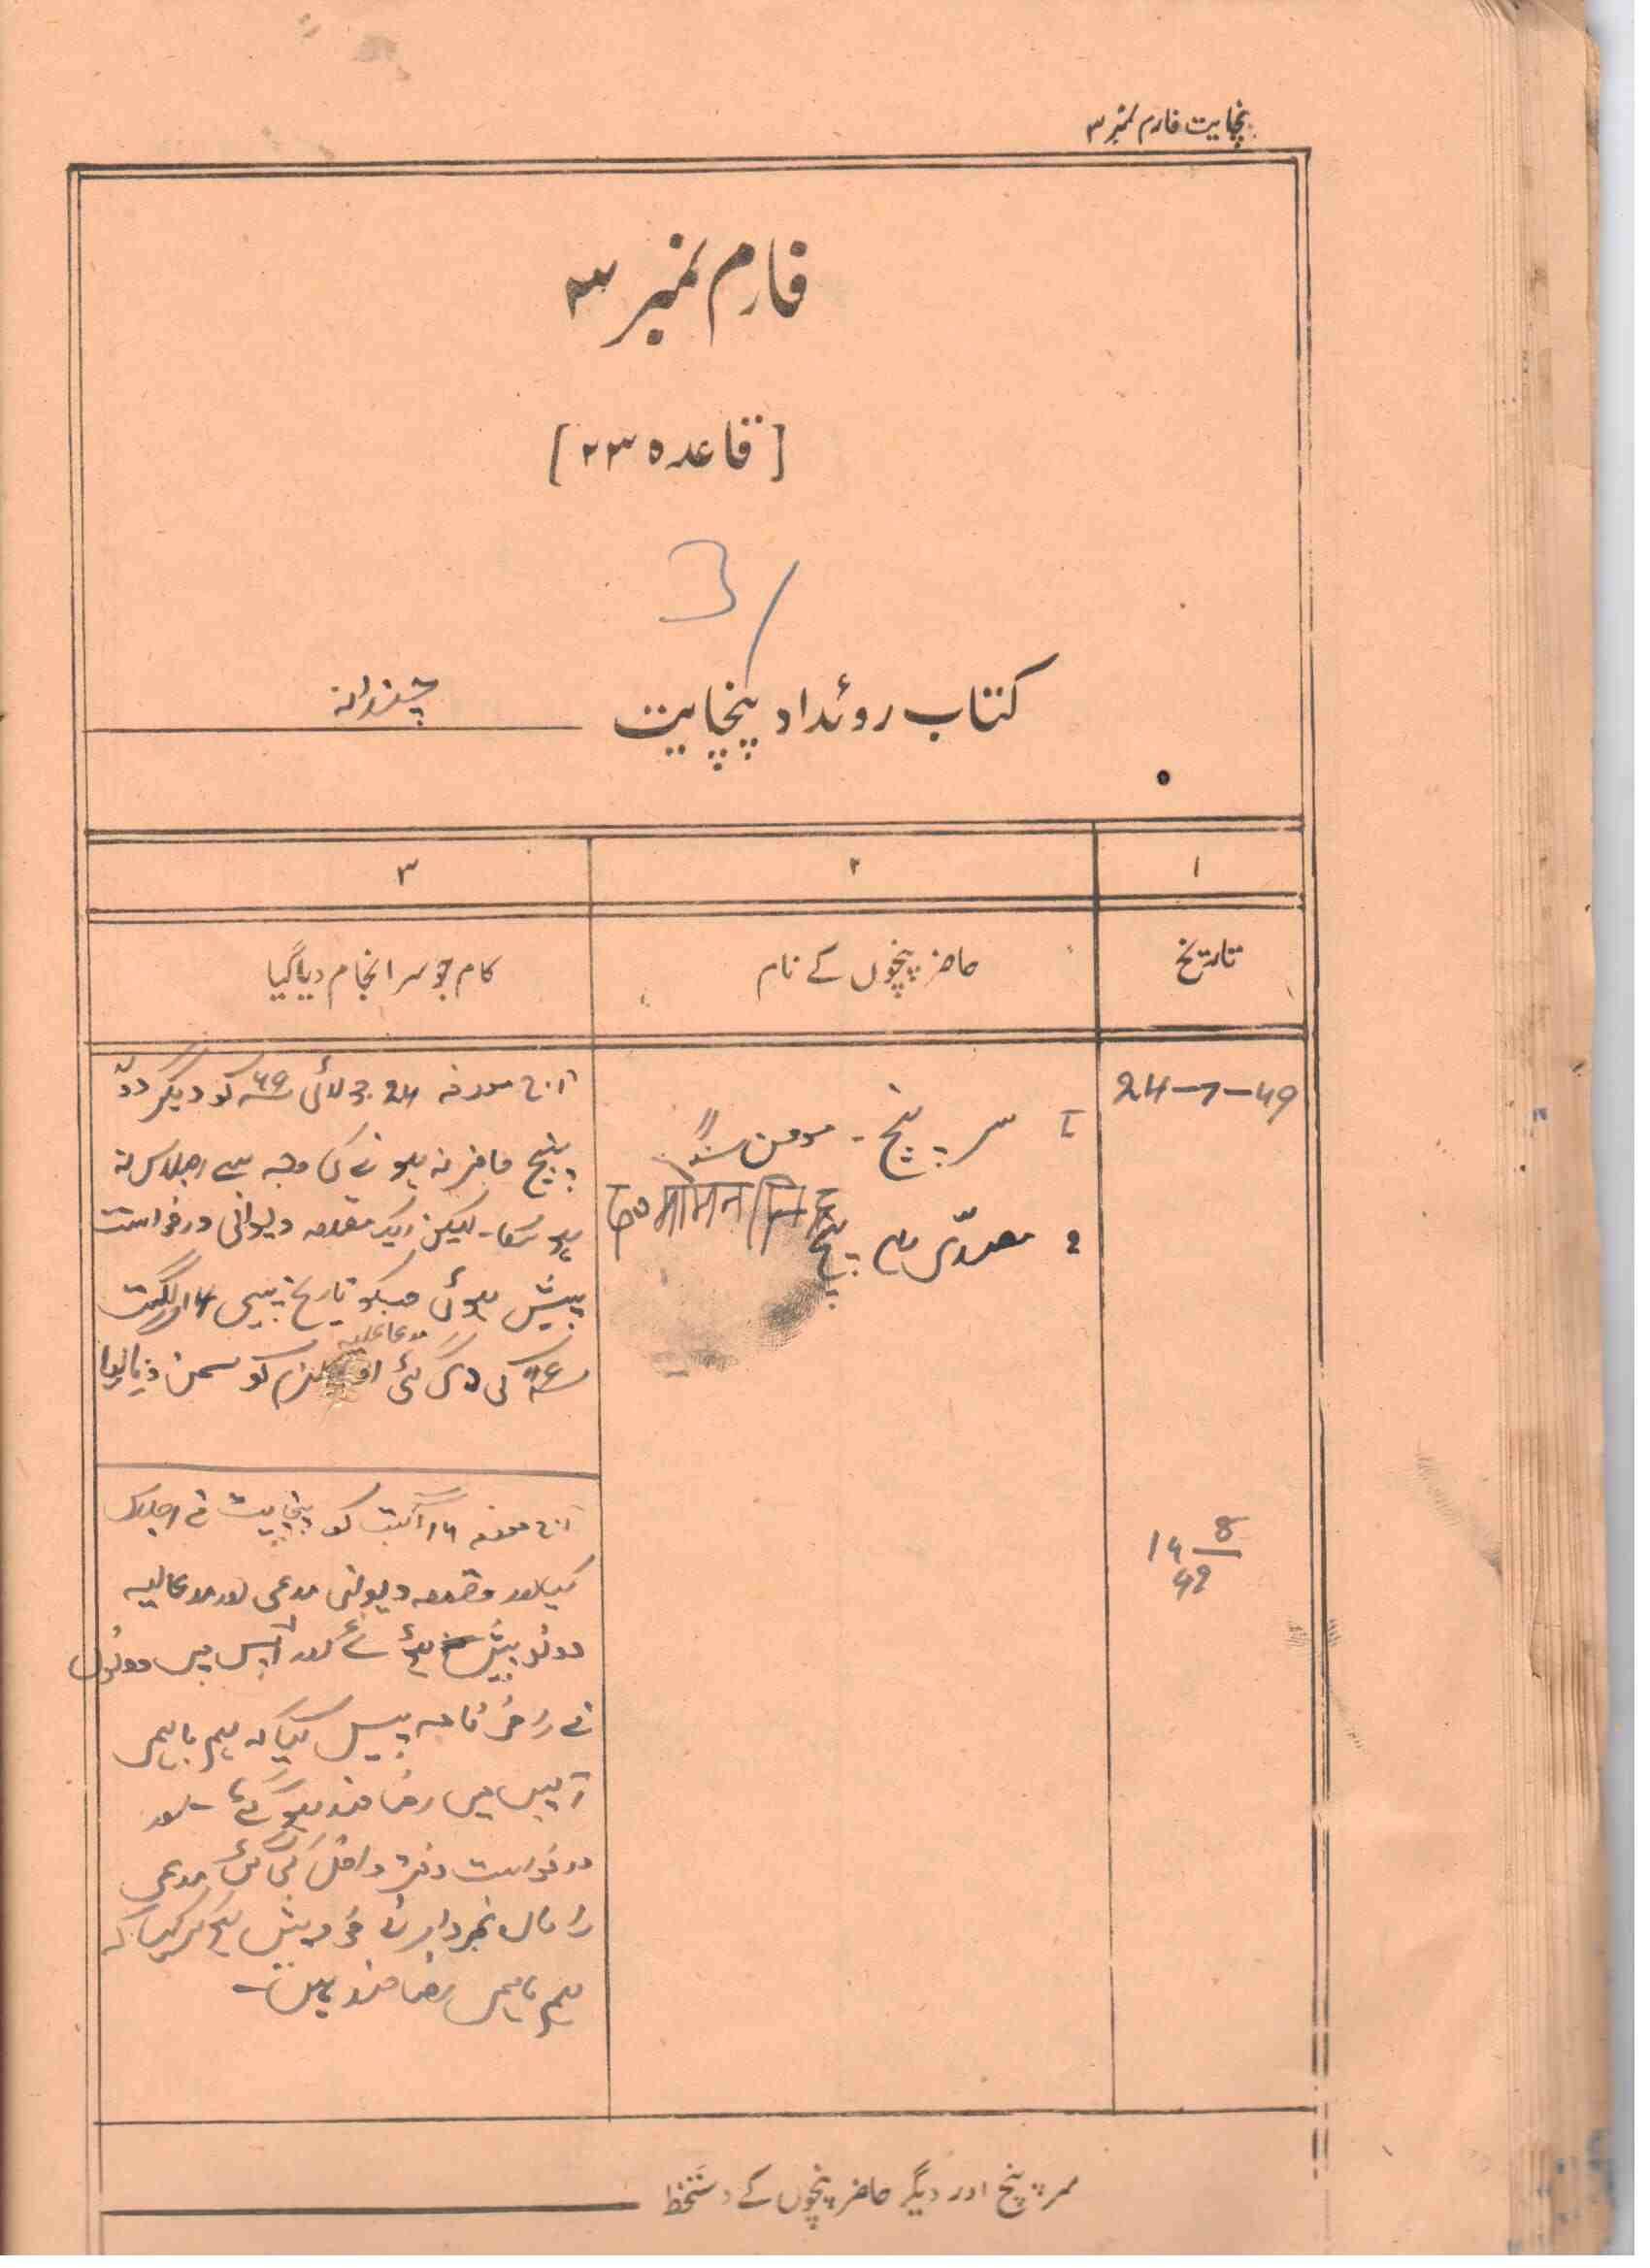 پنچایت فارم نمبر ۳
فارم نمبر ۳
[قاعدہ ۲۳]
3/
کتاب روئداد پنچایت
۱ ۲ ۳
تاریخ حاضر پنچوں کے نام کام جو سر انجام دیا گیا
24-7-49
1 سر پنچ - مومن سنگھ
2 پنچ
آج مورخہ 24 جولائی ۴۹ء کو دیگر دو
پنچ حاضر نہ ہونے کی وجہ سے اجلاس نہ
ہو سکا - لیکن ایک مقدمہ دیوانی درخواست
پیش ہوئی جسکو تاریخ پیشی 14 اگست
۴۹ء کی دی گئی اور مدعاعلیہ کو سمن دیا گیا
14 8/49
آج مورخہ ۱۴ اگست کو پنچایت نے اجلاس
کیا اور مقدمہ دیوانی مدعی اور مدعالیہ
دونو پیش ہوئے اور آپس میں دونوں
نے راضی نامہ پیش کیا کہ ہم باہمی
آپس میں رضامند ہو گئے - اور
درخواست دفتر داخل کی گئی مدعی
نمبردار نے خود پیش ہو کر کہا کہ
ہم باہمی رضامند ہیں -
سر پنچ اور دیگر حاضر پنچوں کے دستخط